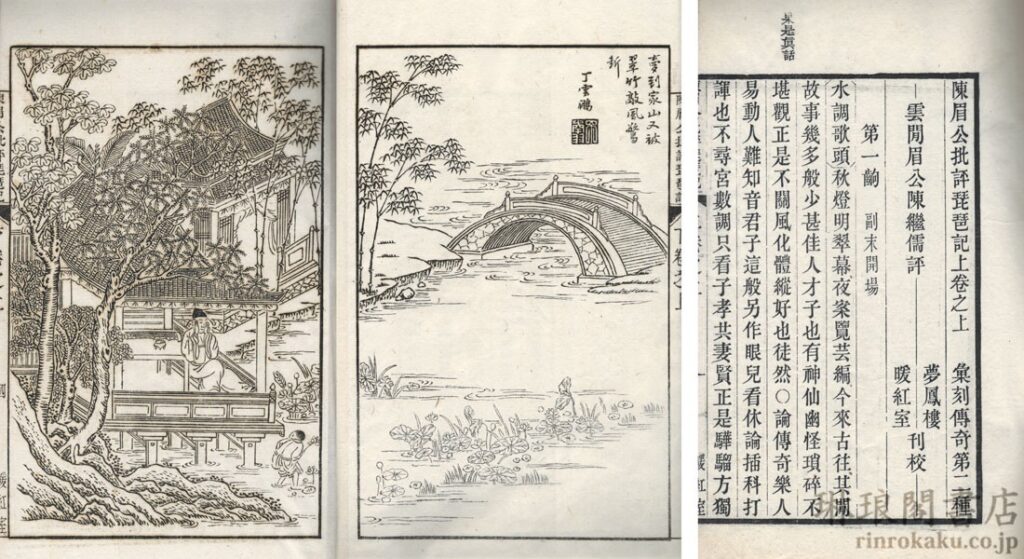 夢到家山又被
翠竹敲風驚
断
丁雲鵬
暖紅室
果是真話
陳眉公批評琵琶記上卷之上 彙刻傳奇第二種
雲間眉公陳繼儒評 夢鳳樓 暖紅室 刊校
第一齣 副末開場
水調歌頭秋燈明翠幕夜案覽芸編今來古往其間
故事幾多般少甚佳人才子也有神仙幽怪瑣碎不
堪觀正是不關風化體縱好也徒然〇論傳奇樂人
易動人難知音君子這般另作眼兒看休論插科打
諢也不尋宮數調只看子孝共妻賢正是驊騮方獨
琳琅閣書店
rinrokaku.co.jp